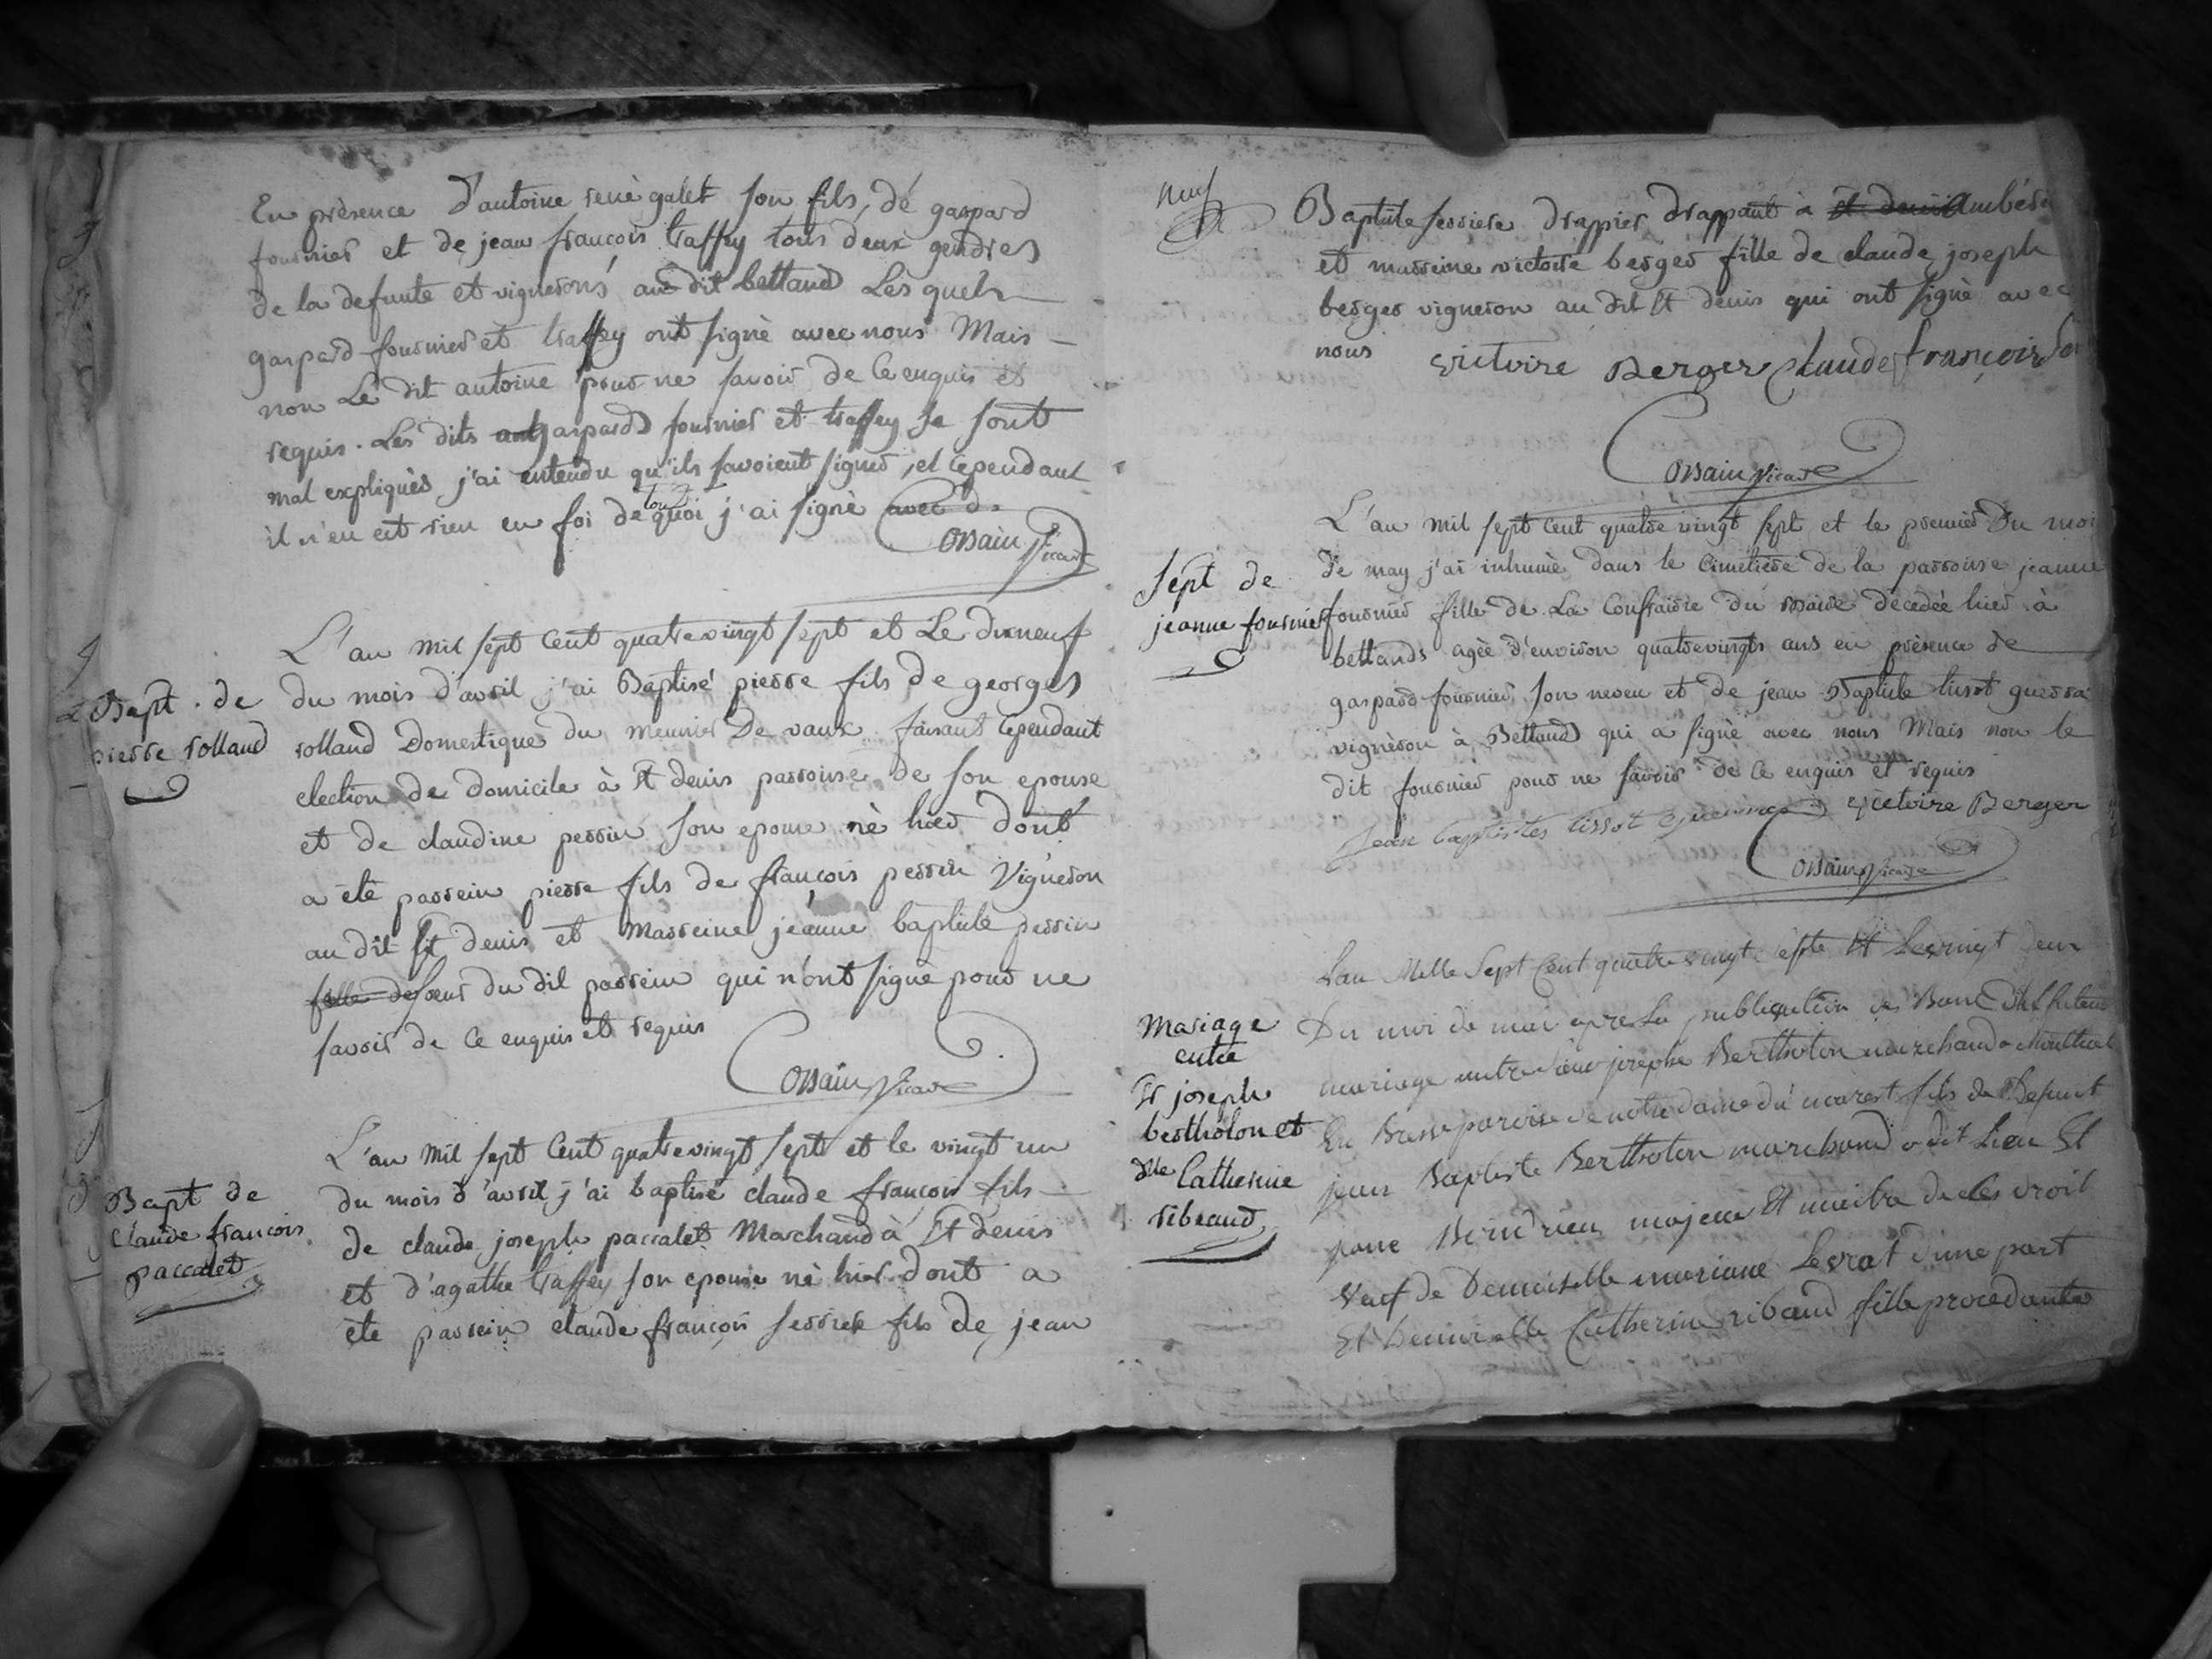 En prèsence d'antoine renè galet son fils, dé gaspard
fournier et de jean françois traffey tous deux gendres
de la defunte et vignerons au dit bettand Lesquels
gaspard fournier et traffey ont signè avec nous Mais
non Le dit antoine pour ne savoir de ce enquis et
requis. Les dits gaspard fournier et traffey se sont
mal expliquès j'ai entendu qu'ils savoient signer, et cependant
il n'en est rien en foi de tout quoi j'ai signè avec d.
Orsain Vicaire
Bapt. de
pierre rolland
L'an mil sept cent quatrevingt sept et Le dixneuf
du mois d'avril j'ai Baptisé pierre fils de georges
rolland Domestique du meunier De vaux faisant cependant
election de domicile à St denis parroisse de son epouse
et de claudine perrin son epouse né hier dont
a été parrein pierre fils de françois perrin Vigneron
au dit St denis et Marreine jeanne baptiste perrin
fille de soeur du dit parrein qui n'ont signè pour ne
savoir de ce enquis et requis
Orsain Vicaire
Bapt de
Claude francois
paccalet
L'an mil sept cent quatrevingt sept et le vingt un
du mois d'avril j'ai baptisé claude françois fils
de claude joseph paccalet Marchand à St denis
et d'agathe traffey son epouse né hier dont a
ète parrein claude françois ferriere fils de jean
Baptiste ferriere drappier drappant à St denis Ambéri
et marreine victoire berger fille de claude joseph
berger vigneron au dit St denis qui ont signè avec
nous
victoire Berger Claude françois fer
Orsain Vicaire
Sept de
jeanne fournier
L'an mil sept cent quatre vingt sept et le premier Du moi
de may j'ai inhumè dans le cimetière de la parroisse jeanne
fournier fille de La Confrairie du rosaire decedée hier à
bettands agèe d'environ quatrevingts ans en prèsence de
gaspard fournier son neveu et de jean Baptiste tissot guerra
vigneron à Bettand qui a signè avec nous Mais non le
dit fournier pour ne savoir de ce enquis et requis
jean baptistes tissot victoire Berger
Orsain Vicaire
Mariage
entre
Sr joseph
bertholon et
dlle Catherine
ribaud
Lan Mille Sept Cent quatre vingt septe Et Levingt deux
Du moi de mai apres La publication des Banc
mariage entre sieur josephe Bertholon marchand a Montluel
En Bresse paroisse de notre dame du marest fils de Defunt
jean Baptiste Bertholon marchand audit Lieu Et
majeur Et maitre de Ces droit
Veuf de Demoiselle mariane Levrat d'une part
Et Demoiselle Catherine ribaud fille procedante